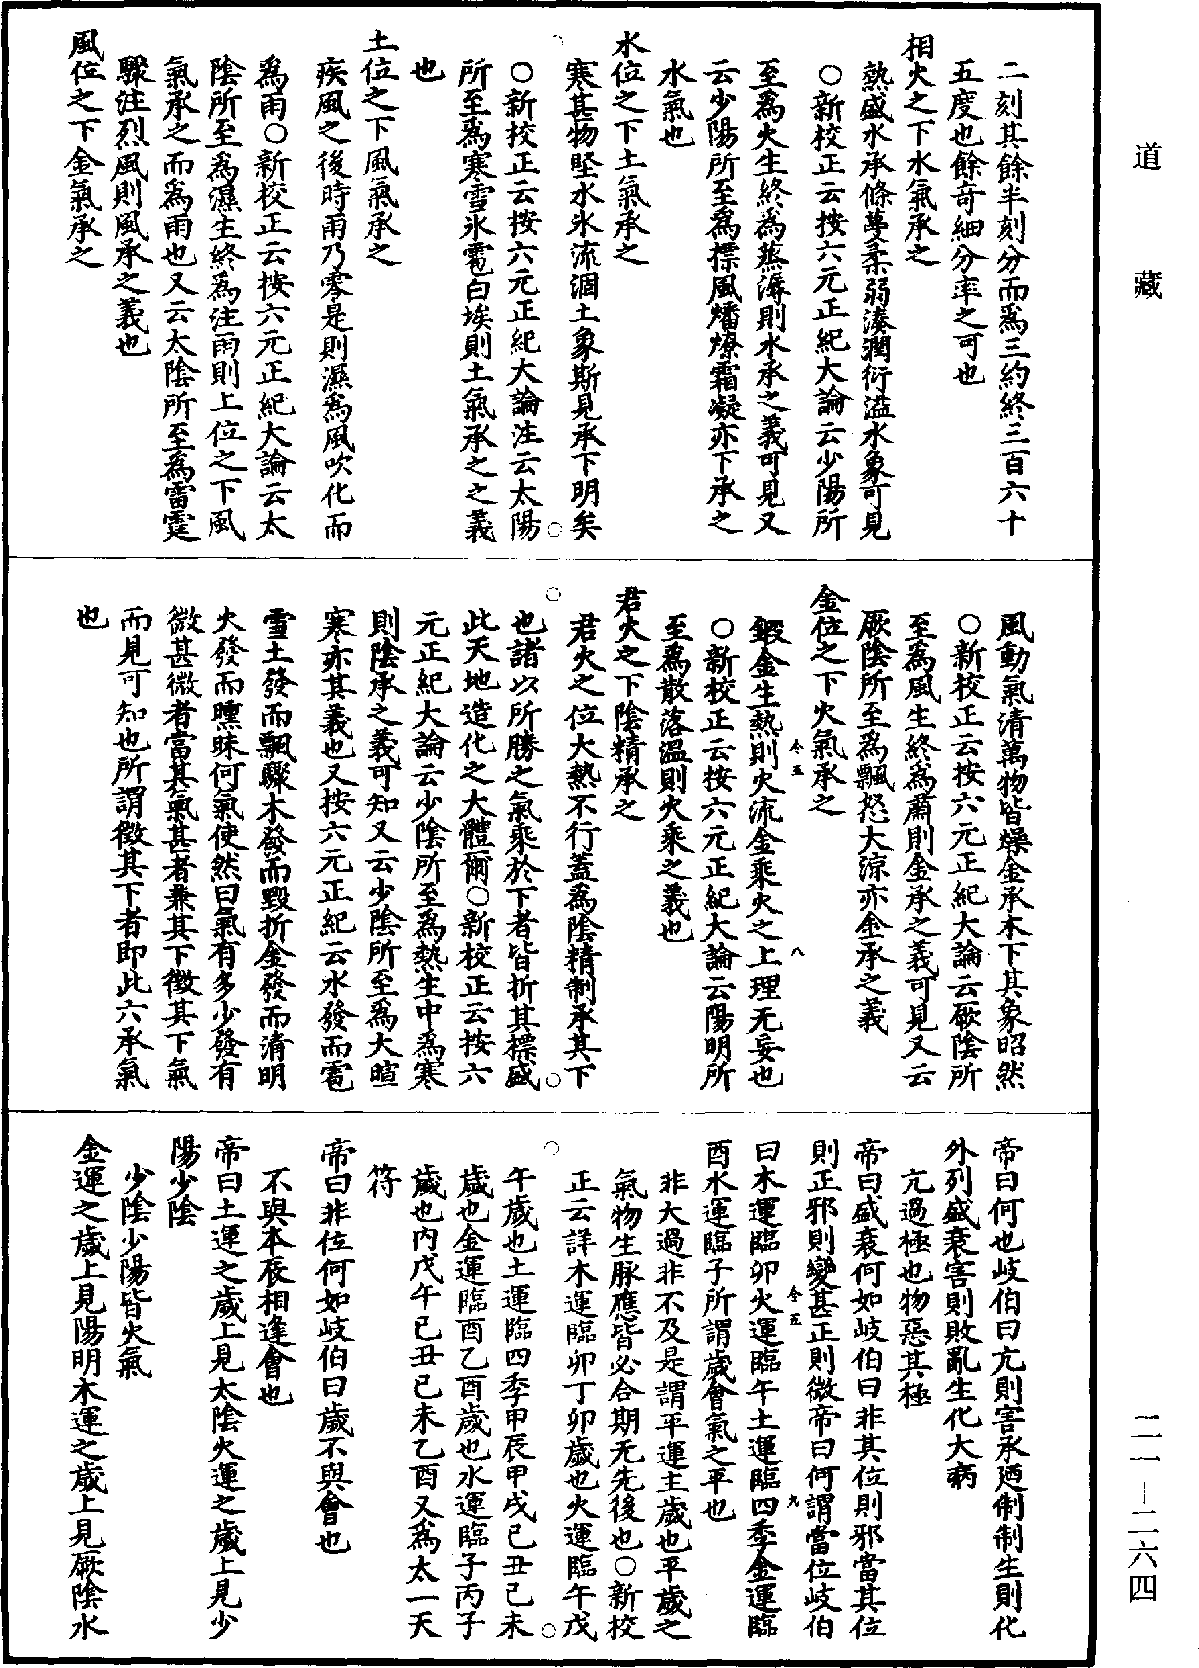 道藏
二一—二六四
二刻其餘半刻分而爲三約終三百六十
五度也餘奇細分率之可也
相火之下水氣承之
熱盛水承條蔓柔弱湊潤衍溢水象可見
○新校正云按六元正紀大論云少陽所
至爲火生終爲蒸溽則水承之義可見又
云少陽所至爲摽風燔燎霜凝亦下承之
水氣也
水位之下土氣承之
寒甚物堅水氷流涸土象斯見承下明矣
○新校正云按六元正紀大論注云太陽
所至爲寒雪氷雹白埃則土氣承之之義
也
土位之下風氣承之
疾風之後時雨乃零是則濕爲風吹化而
爲雨○新校正云按六元正紀大論云太
陰所至爲濕生終爲注雨則上位之下風
氣承之而爲雨也又云太陰所至爲雷霆
驟注烈風則風承之義也
風位之下金氣承之
風動氣清萬物皆燥金承木下其象昭然
○新校正云按六元正紀大論云厥陰所
至爲風生終爲肅則金承之義可見又云
厥陰所至爲飄怒大涼亦金承之義
金位之下火氣承之
鍛金生熱則火流金乘火之上理无妄也
○新校正云按六元正紀大論云陽明所
至爲散落溫則火乘之義也
君火之下陰精承之
君火之位大熱不行蓋爲陰精制承其下
也諸以所勝之氣乘於下者皆折其摽盛
此天地造化之大體爾○新校正云按六
元正紀大論云少陰所至爲熱生中爲寒
則陰承之義可知又云少陰所至爲大暄
寒亦其義也又按六元正紀云水發而雹
雪土發而飄驟木發而毀折金發而清明
火發而曛昧何氣使然曰氣有多少發有
微甚微者當其氣甚者兼其下徵其下氣
而見可知也所謂徵其下者即此六承氣
也
帝曰何也岐伯曰亢則害承廼制制生則化
外列盛衰害則敗亂生化大病
亢過極也物惡其極
帝曰盛衰何如岐伯曰非其位則邪當其位
則正邪則變甚正則微帝曰何謂當位岐伯
曰木運臨卯火運臨午土運臨四季金運臨
酉水運臨子所謂歲會氣之平也
非大過非不及是謂平運主歲也平歲之
氣物生脉應皆必合期无先後也○新校
正云詳木運臨卯丁卯歲也火運臨午戊
午歲也土運臨四季甲辰甲戌己丑己未
歲也金運臨酉乙酉歲也水運臨子丙子
歲也內戊午己丑己未乙酉又爲太一天
符
帝曰非位何如岐伯曰歲不與會也
不與本辰相逢會也
帝曰土運之歲上見太陰火運之歲上見少
陽少陰
少陰少陽皆火氣
金運之歲上見陽明木運之歲上見厥陰水